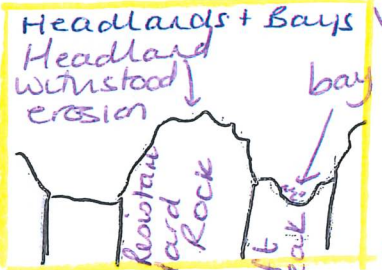 Headlands + Bays
Headland
withstood
erosion
bay
Resistan
ard
Rock
t
eak